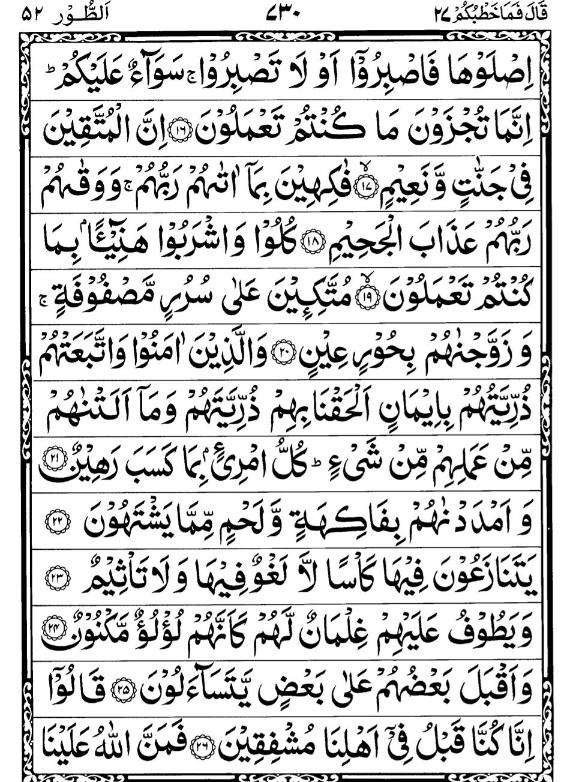 قَالَ فَمَا خَطْبُكُمْ ٢٧ ٧٣٠ اَلطُّوْر ٥٢
اِصْلَوْهَا فَاصْبِرُوْۤا اَوْ لَا تَصْبِرُوْا ۚ سَوَآءٌ عَلَيْكُمْ ؕ
اِنَّمَا تُجْزَوْنَ مَا كُنْتُمْ تَعْمَلُوْنَ ﴿١٦﴾ اِنَّ الْمُتَّقِيْنَ
فِيْ جَنّٰتٍ وَّنَعِيْمٍ ﴿١٧﴾ۙ فٰكِهِيْنَ بِمَاۤ اٰتٰىهُمْ رَبُّهُمْ ۚ وَوَقٰىهُمْ
رَبُّهُمْ عَذَابَ الْجَحِيْمِ ﴿١٨﴾ كُلُوْا وَاشْرَبُوْا هَنِيْٓـًٔا ۢ بِمَا
كُنْتُمْ تَعْمَلُوْنَ ﴿١٩﴾ۙ مُتَّكِـِٕيْنَ عَلٰى سُرُرٍ مَّصْفُوْفَةٍ ۚ
وَزَوَّجْنٰهُمْ بِحُوْرٍ عِيْنٍ ﴿٢٠﴾ وَالَّذِيْنَ اٰمَنُوْا وَاتَّبَعَتْهُمْ
ذُرِّيَّتُهُمْ بِاِيْمَانٍ اَلْحَقْنَا بِهِمْ ذُرِّيَّتَهُمْ وَمَاۤ اَلَتْنٰهُمْ
مِّنْ عَمَلِهِمْ مِّنْ شَيْءٍ ؕ كُلُّ امْرِئٍ ۢ بِمَا كَسَبَ رَهِيْنٌ ﴿٢١﴾
وَاَمْدَدْنٰهُمْ بِفَاكِهَةٍ وَّلَحْمٍ مِّمَّا يَشْتَهُوْنَ ﴿٢٢﴾
يَتَنَازَعُوْنَ فِيْهَا كَاْسًا لَّا لَغْوٌ فِيْهَا وَلَا تَاْثِيْمٌ ﴿٢٣﴾
وَيَطُوْفُ عَلَيْهِمْ غِلْمَانٌ لَّهُمْ كَاَنَّهُمْ لُؤْلُؤٌ مَّكْنُوْنٌ ﴿٢٤﴾
وَاَقْبَلَ بَعْضُهُمْ عَلٰى بَعْضٍ يَّتَسَآءَلُوْنَ ﴿٢٥﴾ قَالُوْۤا
اِنَّا كُنَّا قَبْلُ فِيْۤ اَهْلِنَا مُشْفِقِيْنَ ﴿٢٦﴾ فَمَنَّ اللّٰهُ عَلَيْنَا